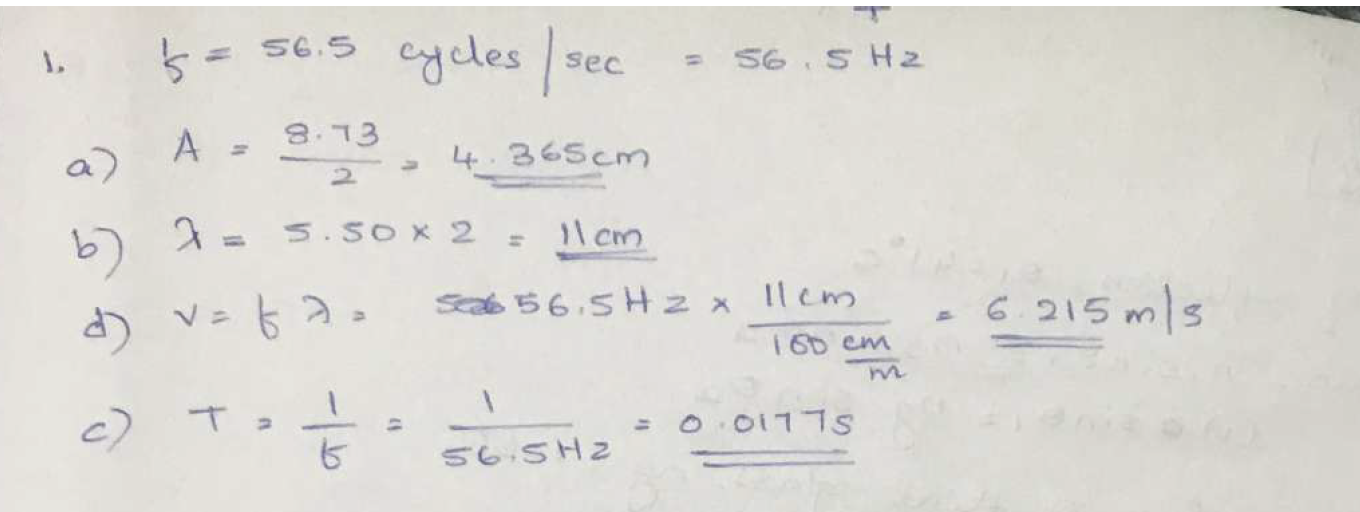 1. f = 56.5 cycles/sec = 56.5 Hz
a) A = 8.73/2 = 4.365cm
b) λ = 5.50 × 2 = 11cm
d) v = fλ = 56.5Hz × 11cm / 100 cm/m = 6.215 m/s
c) T = 1/f = 1/56.5Hz = 0.0177s